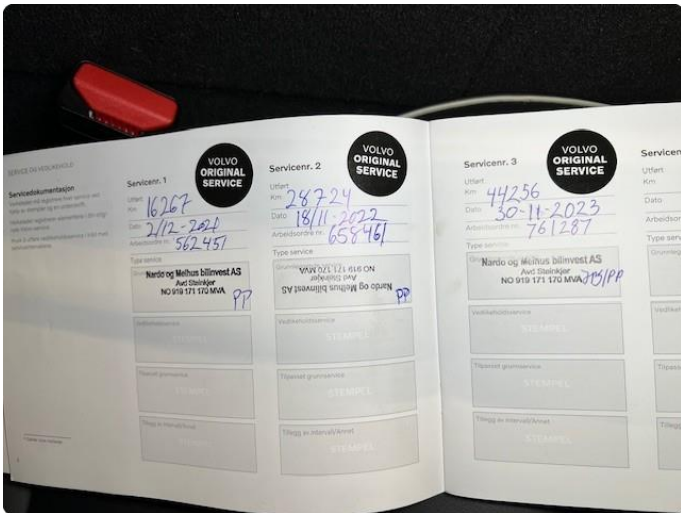 SERVICE OG VEDLIKEHOLD
Servicedokumentasjon
Servicenr. 1
VOLVO
ORIGINAL
SERVICE
Utført
Km 16267
Dato 2/12-2021
Arbeidsordre nr. 562451
Type service
Nardo og Melhus bilinvest AS
Avd Steinkjer
NO 919 171 170 MVA
PP
Vedlikeholdsservice
STEMPEL
Tilpasset grunnservice
STEMPEL
Tillegg av intervall/Annet
STEMPEL
Servicenr. 2
VOLVO
ORIGINAL
SERVICE
Utført
Km 28724
Dato 18/11-2022
Arbeidsordre nr. 658461
Type service
Nardo og Melhus bilinvest AS
Avd Steinkjer
NO 919 171 170 MVA
PP
Vedlikeholdsservice
STEMPEL
Tilpasset grunnservice
STEMPEL
Tillegg av intervall/Annet
STEMPEL
Servicenr. 3
VOLVO
ORIGINAL
SERVICE
Utført
Km 44256
Dato 30-11-2023
Arbeidsordre nr. 761287
Type service
Nardo og Melhus bilinvest AS
Avd Steinkjer
NO 919 171 170 MVA
Vedlikeholdsservice
STEMPEL
Tilpasset grunnservice
STEMPEL
Tillegg av intervall/Annet
STEMPEL
Servicen
Utført
Km
Dato
Arbeidsor
Type serv
Grunnleg